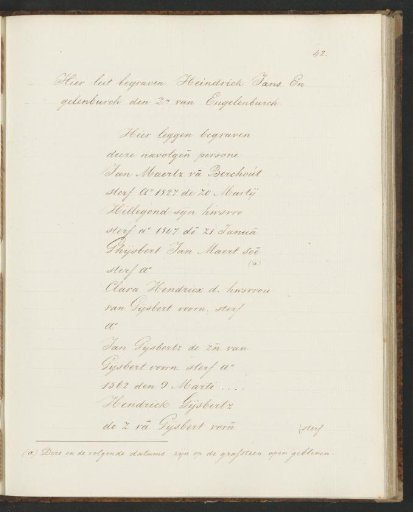 42.
Hier leit begraven Heindrick Jans En
gelenburch den 2n van Engelenburch
Hier leggen begraven
deeze navolgen̄ persone
Jan Maertz vā Berchout
sterf Ao 1527 de 20 Martii
Hillegond syn huisvro
sterf ao 1547 dē 21 Januā
Ghijsbert Jan Maert soē
(a)
sterf ao
Clara Hendricx d. huisvrou
van Gysbert voorn. sterf
ao
Jan Gysbertz de zn̄ van
Gysbert voorn. sterf ao
1562 den 9 Marti ....
Hendrick Gijsbertz
de z vā Gysbert voorn̄
(sterf
(a) Deze en de volgende datums zyn op de grafsteen open gebleven